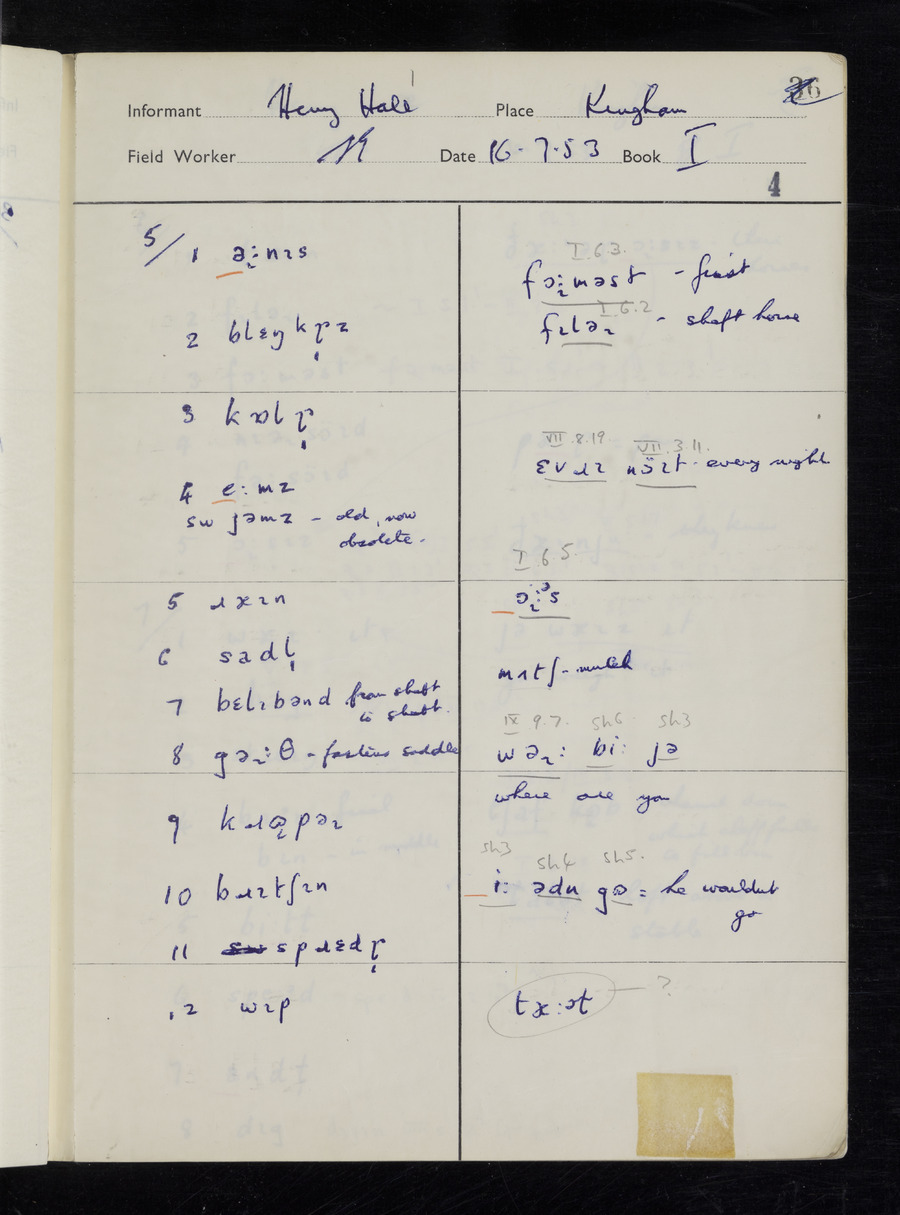 36
Informant Henry Hale Place Kingham
Field Worker Date 16.7.53 Book I
4
5/ 1 əɪ:nɪs
2 blɛŋkɽ̩z
3 kɒlɽ̩
4 e:mz
sw jəmz - old, now
obsolete.
5 ɹæɪn
6 sadl̩
7 bɛlɪbənd from shaft
to shaft.
8 gəɪ:θ - fastens saddle
9 kɹɒpəɪ
10 bɹɪtʃɪn
11 spɹɛdɽ̩
12 wɪp
I.6.3.
fəɪ:məst - first
I.6.2
fɪləɪ - shaft horse
VII.8.19 VII.3.11.
ɛvɹɪ nɔ̈ɪt - every night
I 6 5.
ɔɪ:ᵊs
mʌtʃ - mulch
IX 9.7. sh6 sh3
wəɪ: bi: jə
where are you
sh3 sh4 sh5.
i: ədn gɷ = he wouldnt
go
tæ:ət ?